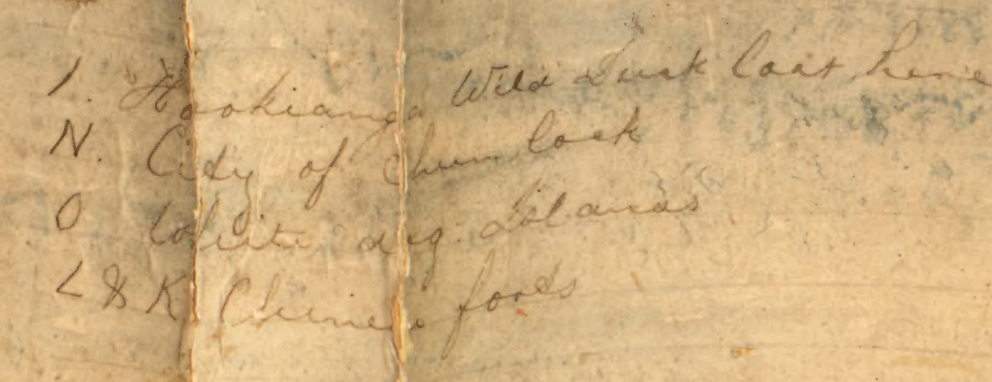 1. Hookianga Wild Duck lost here
N. City of Chum lock
O White dog Islands
L & K Chinese forts